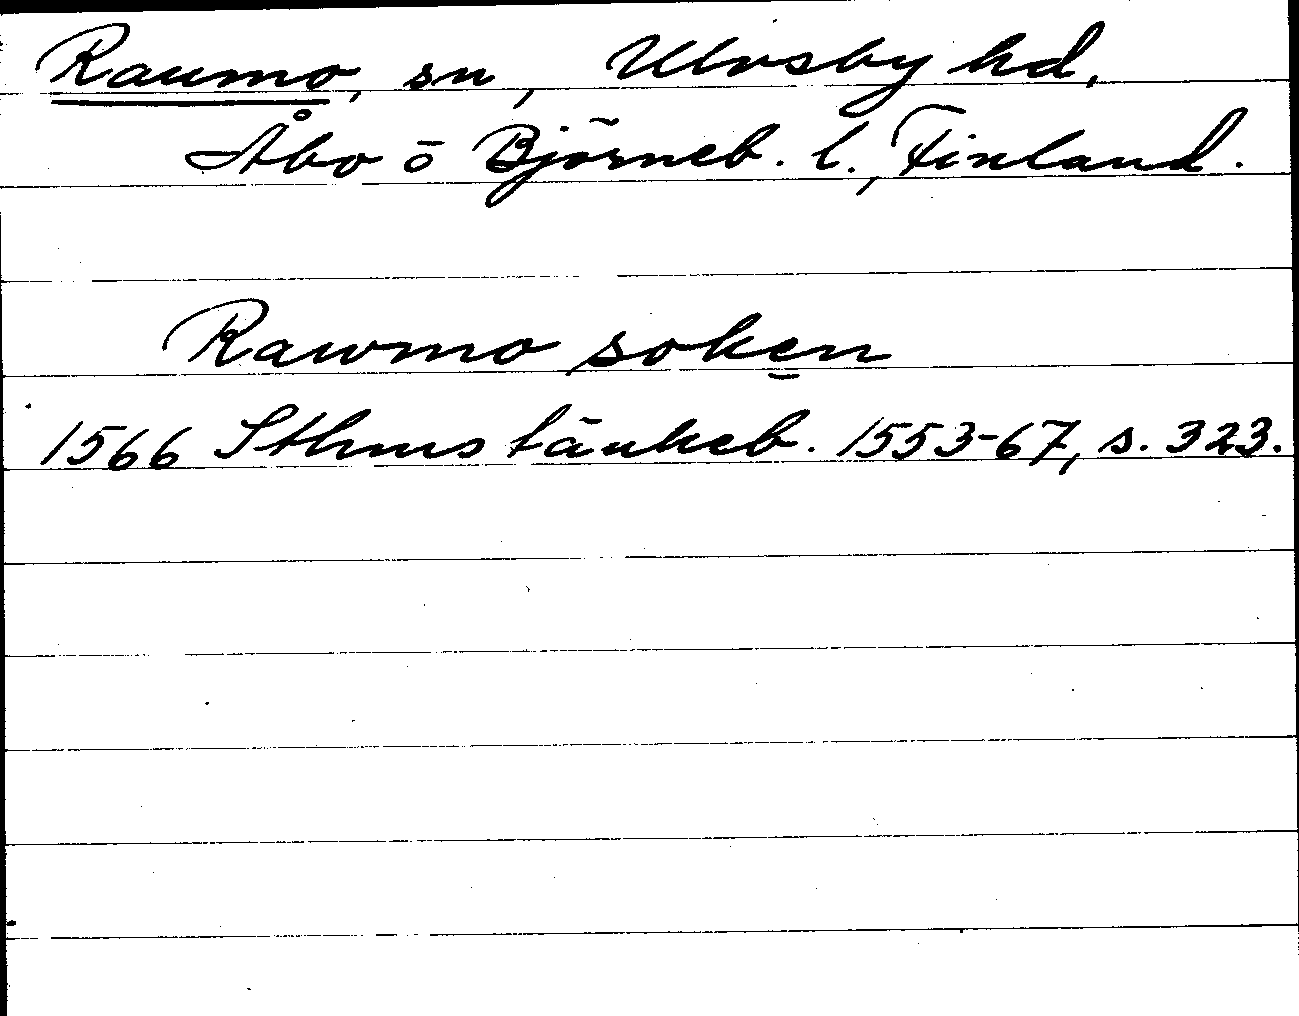 Raumo, sn, Ulvsby hd,
Åbo o Björneb. l., Finland.
Rawmo soken
1566 Sthms tänkeb. 1553-67, s. 323.